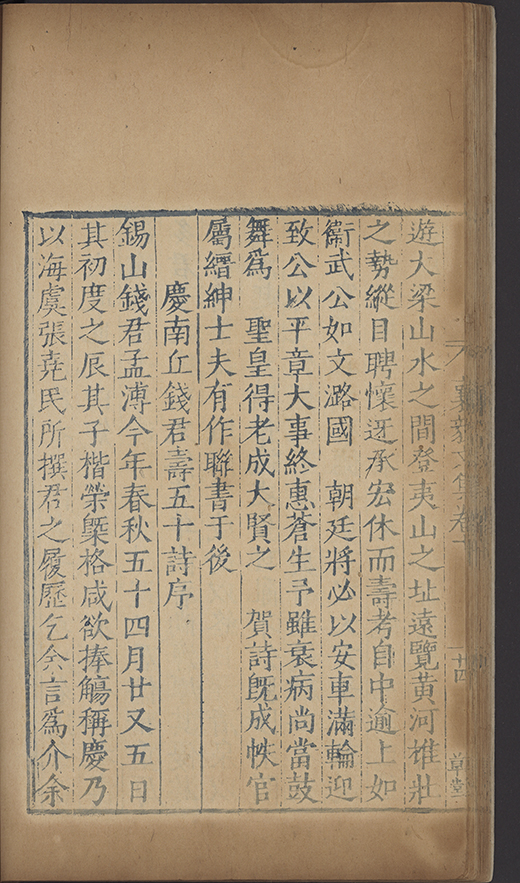 遊大梁山水之間登夷山之址遠覽黃河雄壯
之勢縱目聘懷迓承宏休而壽考自中逾上如
衛武公如文潞國　朝廷將必以安車滿輪迎
致公以平章大事終惠蒼生予雖衰病尚當鼓
舞爲　聖皇得老成大賢之　賀詩旣成帙官
屬縉紳士夫有作聯書于後
慶南丘錢君壽五十詩序
錫山錢君孟溥今年春秋五十四月廿又五日
其初度之辰其子楷榮槩格咸欲捧觴稱慶乃
以海虞張堯民所撰君之履歷乞余言爲介余
十四
草堂